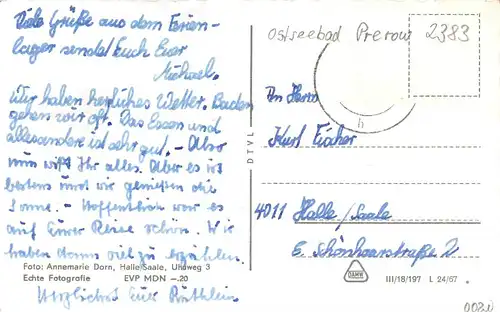 Viele Grüße aus dem Ferien-
lager sendet Euch Euer
Michael.
Wir haben herrliches Wetter. Baden
gehen wir oft. Das Essen und
alles andere ist sehr gut. - Also
nun wißt Ihr alles. Aber es ist
bestens und wir genießen die
Sonne. - Hoffentlich war es
auf Eurer Reise schön. Wir
haben dann viel zu erzählen.
Foto: Annemarie Dorn, Halle/Saale, Uhuweg 3
Echte Fotografie EVP MDN -.20
Herzlichst Eure
Ostseebad Prerow
2383
h
DTVL
An Herrn
Kurt Fischer
4011 Halle/Saale
E. Schönhaarstraße 2
III/18/197 L 24/67